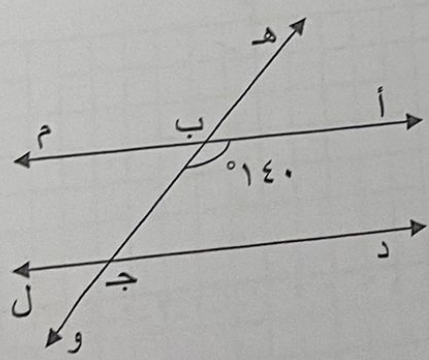 هـ
أ
ب
م
°١٤٠
د
جـ
ل
و